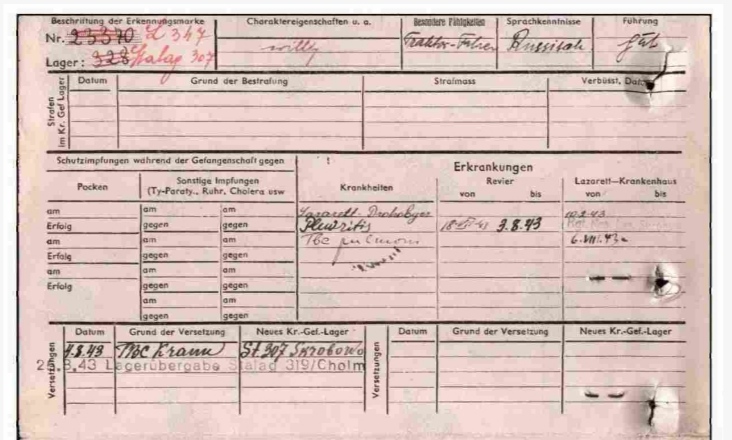 Beschriftung der Erkennungsmarke
Nr. 23370 L 347
Lager: 328 Stalag 307
Charaktereigenschaften u. a.
willig
Besondere Fähigkeiten
Traktor-Fahrer
Sprachkenntnisse
Russisch
Führung
gut
Strafen im Kr. Gef Lager
Datum Grund der Bestrafung Strafmass Verbüsst, Datum
Schutzimpfungen während der Gefangenschaft gegen
Pocken
Sonstige Impfungen
(Ty-Paraty., Ruhr, Cholera usw
am am am
Erfolg gegen gegen
am am am
Erfolg gegen gegen
am am am
Erfolg gegen gegen
am am
gegen gegen
Erkrankungen
Krankheiten
Revier
von bis
Lazarett—Krankenhaus
von bis
Lazarett-Drohobycz
Pleuritis 3.8.43
Tbc pulmonum 6.VIII.43
Versetzungen
Datum Grund der Versetzung Neues Kr.-Gef.-Lager
4.8.43 Tbc Krank St. 307 Skrobowo
.8.43 Lagerübergabe Stalag 319/Cholm
Versetzungen
Datum Grund der Versetzung Neues Kr.-Gef.-Lager